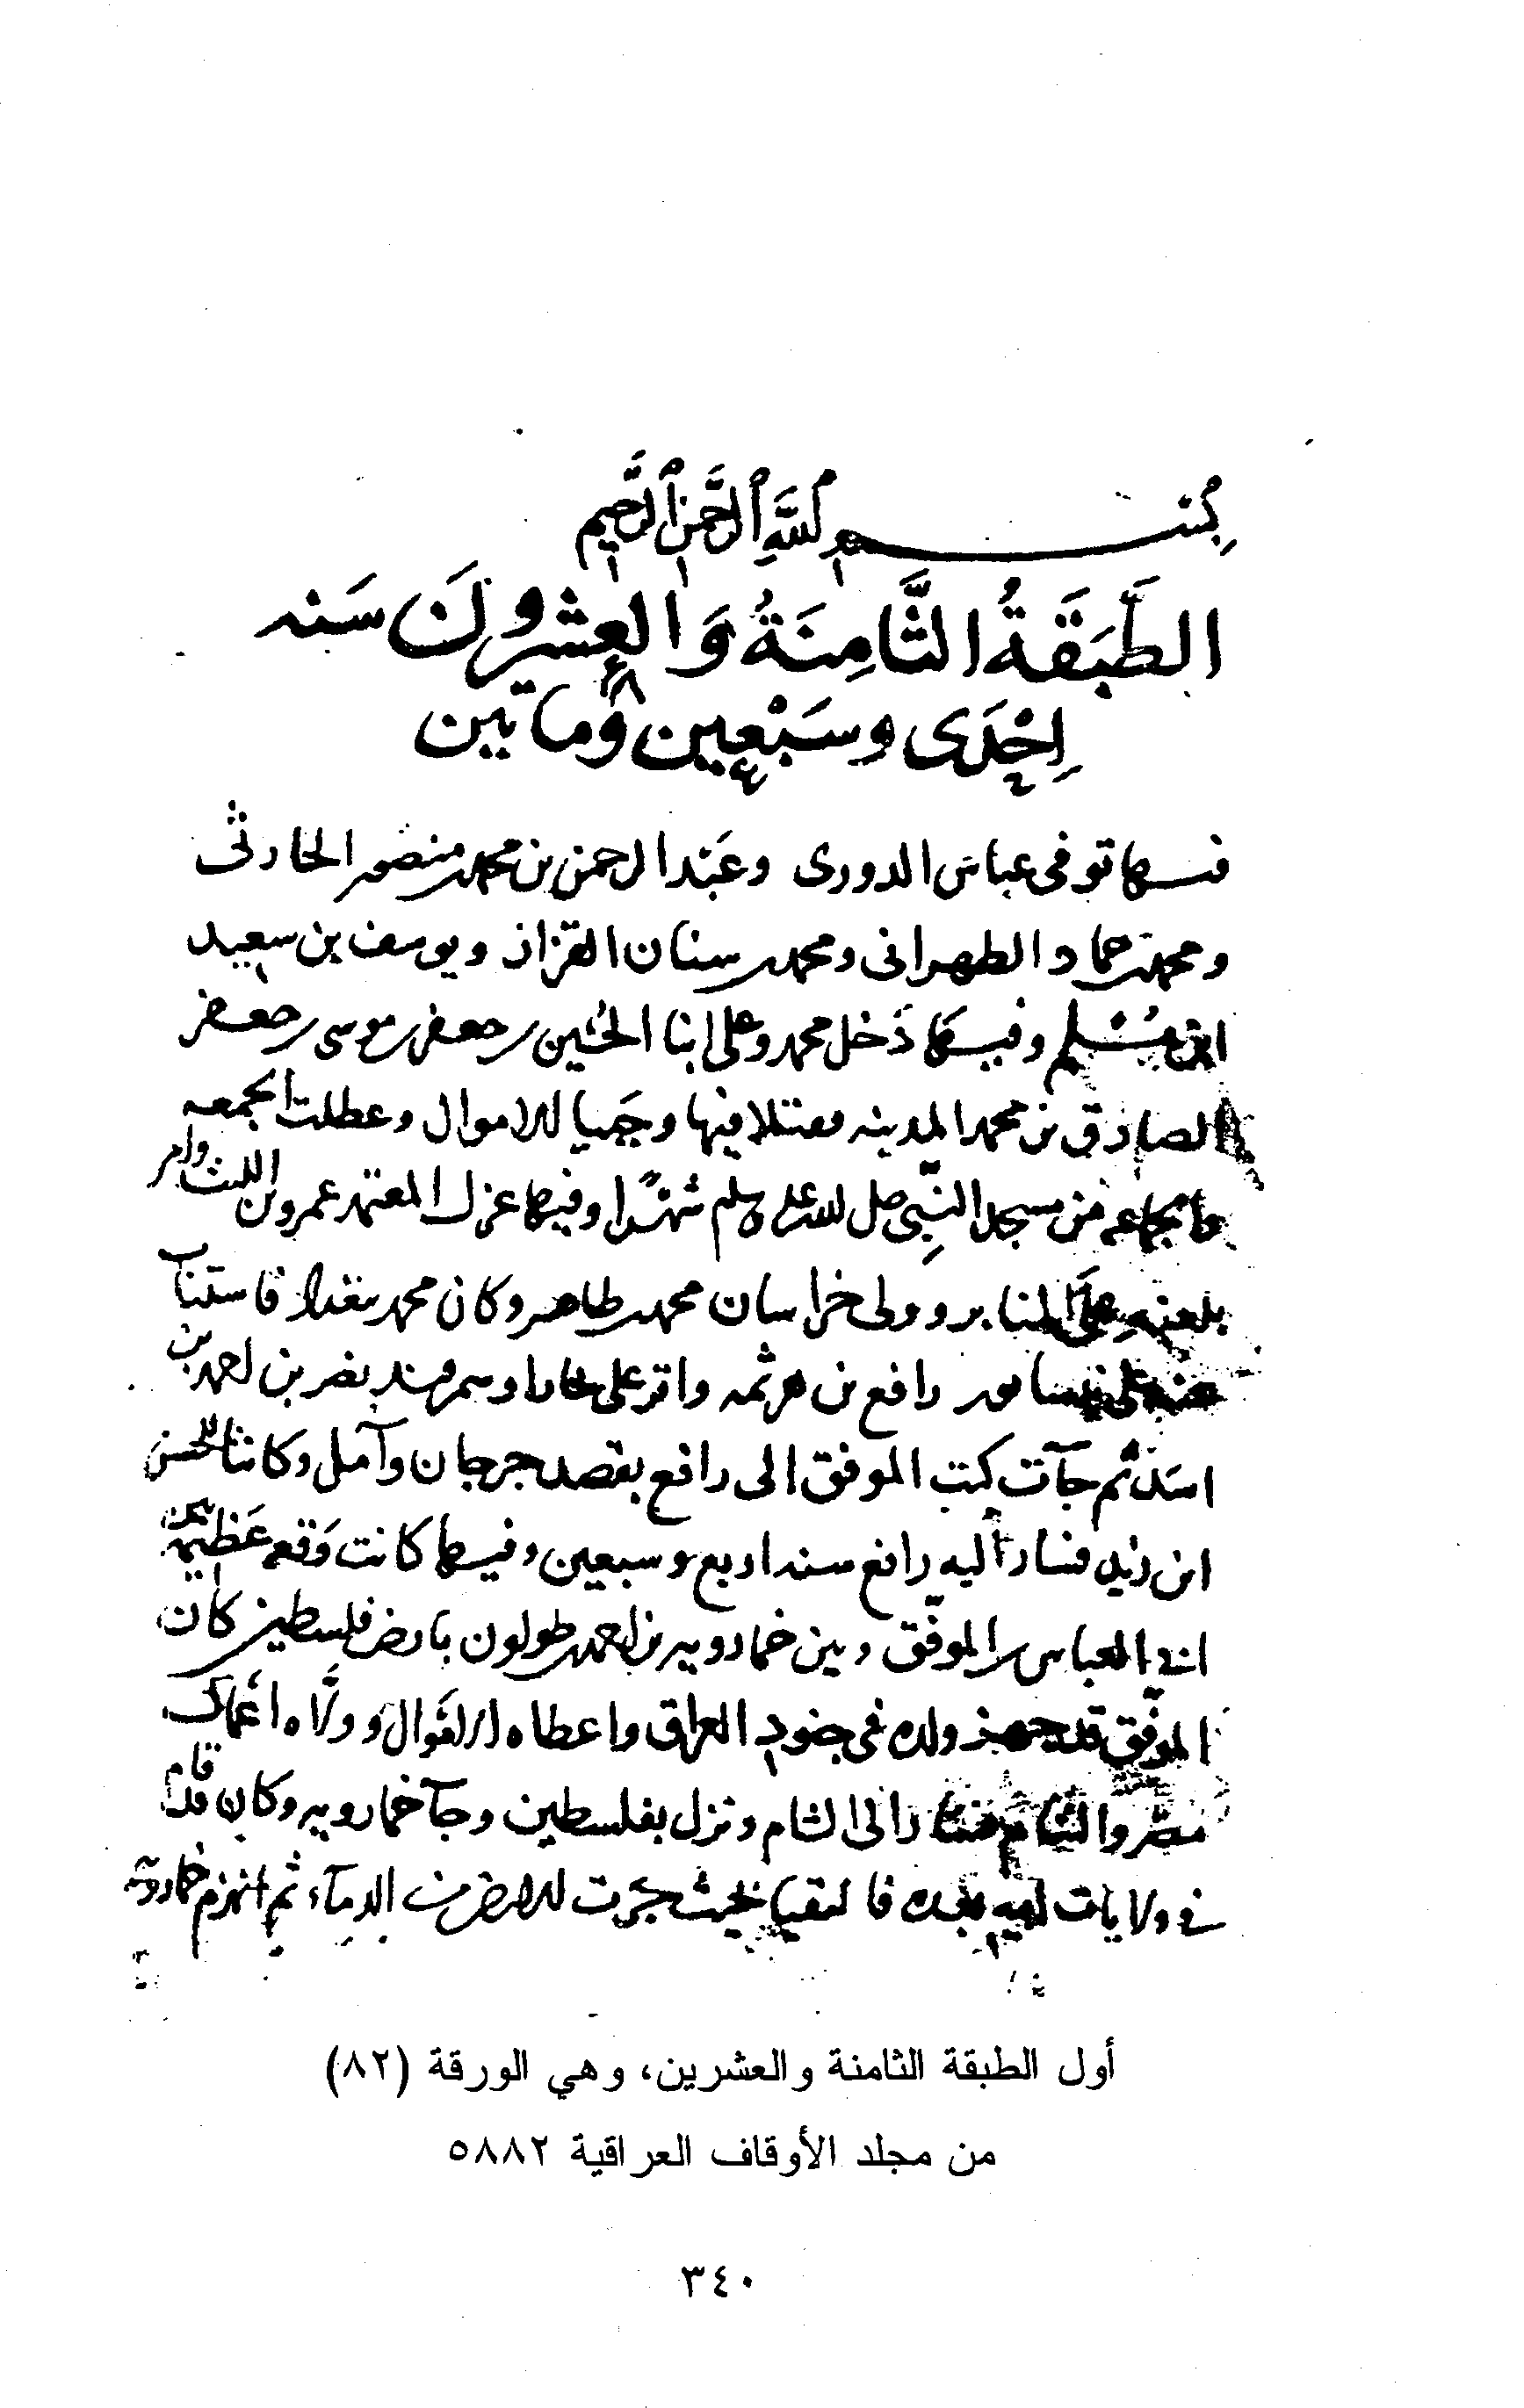 بِسْم اللَّهِ الرَّحْمنِ الرَّحِيم
الطَّبَقَةُ الثَّامِنَةُ وَالعِشْرُونَ سَنه
إِحْدَى وسَبْعِين وماتين
فيها توفى عباس الدورى وعَبْد الرحمن بن محمد بن منصور الحارثى
ومحمد بن حماد الطهرانى ومحمد بن سنان القزاز ويوسف بن سعيد
ابن مُسْلم وفيها دَخل محمد وعلى ابنا الحُسَين بن جعفر بن موسى بن جعفر
الصادق بن محمد المدينه فقتلا فيها وجَبيا الاموال وعطلت الجمعه
والجماعه من مسجد النَّبِى صلى الله عليه وسلم شهْرًا وفيها عزل المعتمد عمرو بن الليث وامر
بلعنهِ على المنابر وولى خراسان محمد بن طاهر وكان محمد ببغداد فاستناب
عنه على نيسابور رافع بن هرثمه واقر على بخارا وسمرقند نصر بن احمد بن
اسَد ثم جآت كتب الموفق الى رافع بقصد جرجان وآمل وكانتا للحسن
ابن زيد فسار اليه رافع سنه اربع وسبعين وفيها كانت وَقعه عَظيمة بين
ابى العباس بن الموفّق وبين خمارويه بن احمد بن طولون بارض فلسطين كان
الموفّق قد جهز ولده فى جنود العراق واعطاه الاموال وولَّاه اعمال
مصْر والشام فسار الى الشام ونزل بفلسطين وجآ خمارويه وكان قد قام
فى ولايات ابيه بعده فالتقيا بحيث جَرَت الارض من الدمآء ثم انهزم خمارويه
أول الطبقة الثامنة والعشرين، وهي الورقة (٨٢)
من مجلد الأوقاف العراقية ٥٨٨٢
٣٤٠